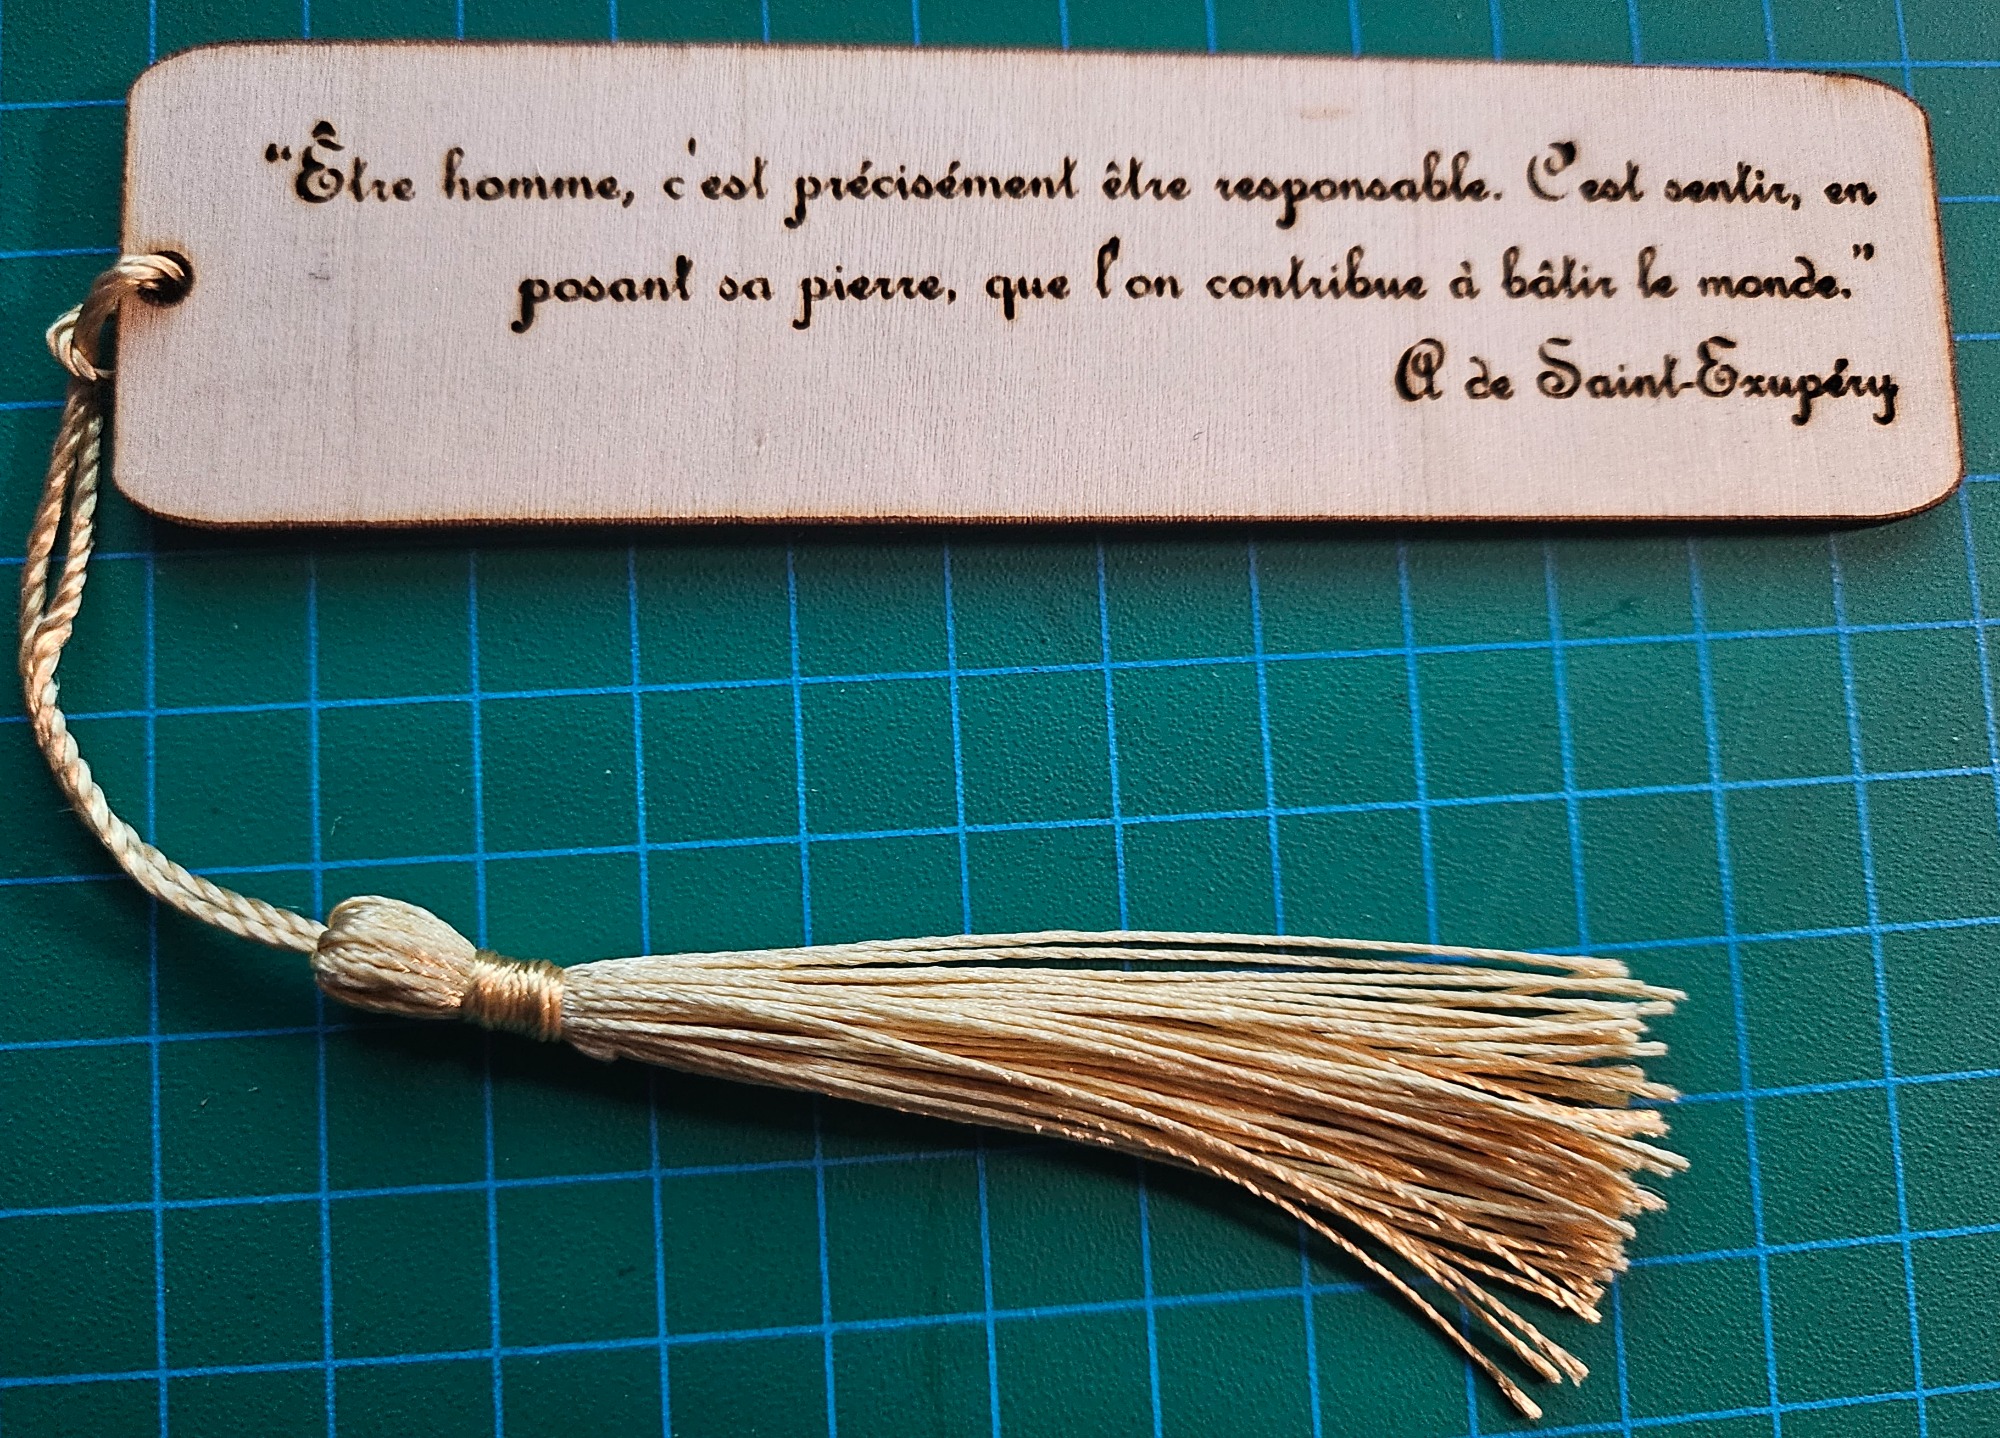 “Être homme, c'est précisément être responsable. C'est sentir, en
posant sa pierre, que l'on contribue à bâtir le monde.”
A de Saint-Exupéry